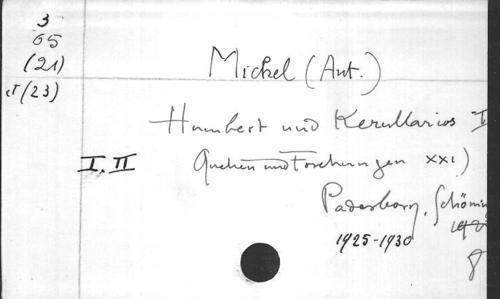 3
65
(21)
et (23)
Michel (Ant.)
Humbert und Kerullarios I
I. II
Quellen und Forschungen XXI)
Paderborn, Schöning
1925-1930
8